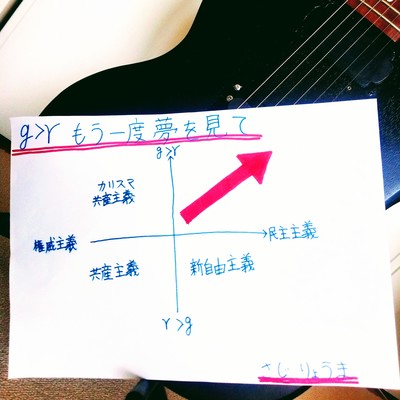 g>r もう一度夢を見て
g>r
カリスマ
共産主義
権威主義
民主主義
共産主義
新自由主義
r>g
さじりょうま